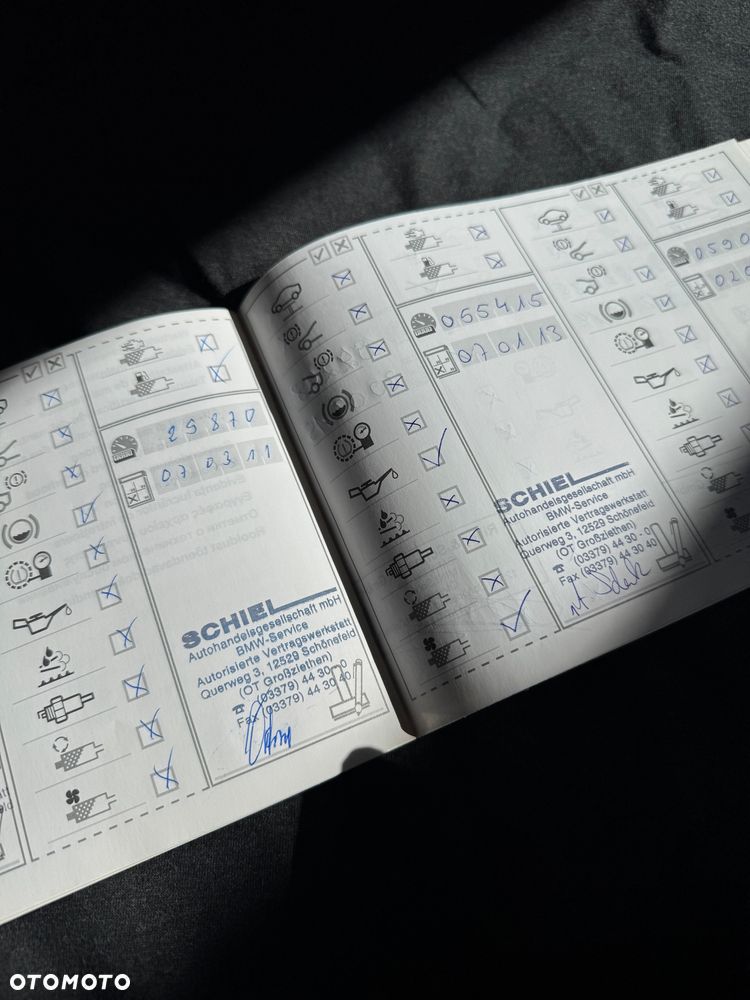 29870
070311
SCHIEL
Autohandelsgesellschaft mbH
BMW-Service
Autorisierte Vertragswerkstatt
Querweg 3, 12529 Schönefeld
(OT Großziethen)
☎ (03379) 44 30 - 0
Fax (03379) 44 30 40
055415
070113
SCHIEL
Autohandelsgesellschaft mbH
BMW-Service
Autorisierte Vertragswerkstatt
Querweg 3, 12529 Schönefeld
(OT Großziethen)
☎ (03379) 44 30 - 0
Fax (03379) 44 30 40
0590
020
OTOMOTO